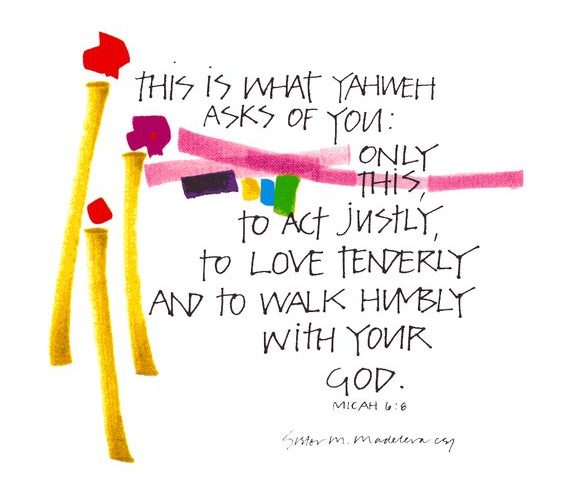 THIS IS WHAT YAHWEH
ASKS OF YOU:
ONLY
THIS,
TO ACT JUSTLY,
TO LOVE TENDERLY
AND TO WALK HUMBLY
WITH YOUR
GOD.
MICAH 6:8
Sister M. Madeleva csj